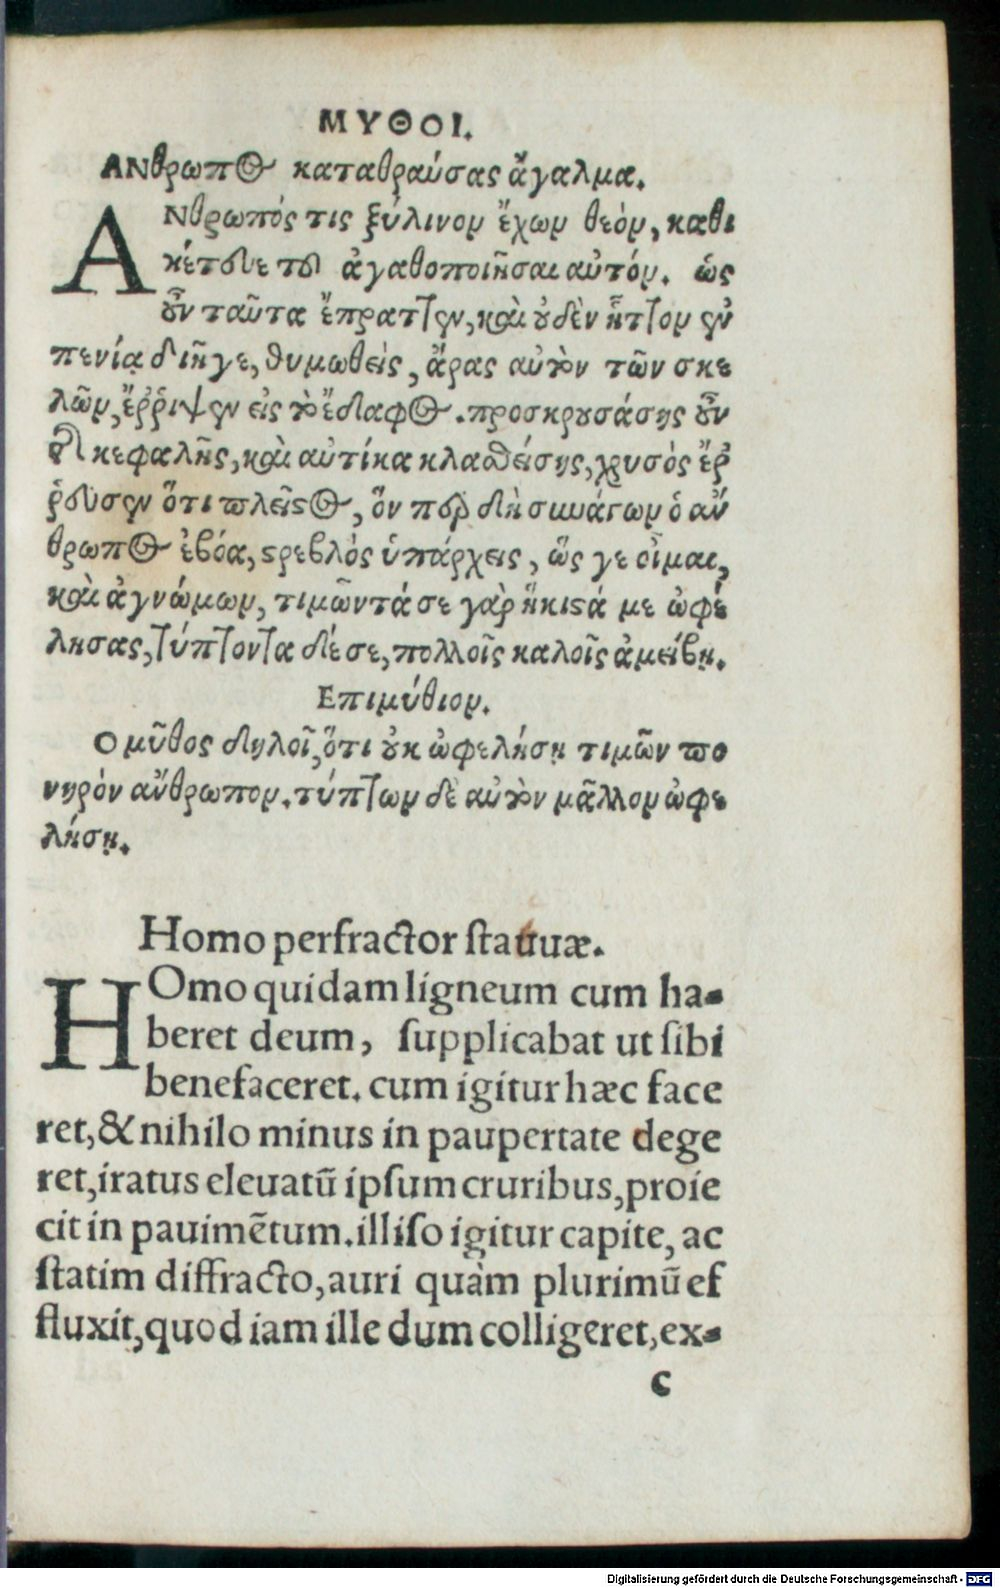 ΜΥΘΟΙ.
ΑΝθρωπος καταθραύσας ἄγαλμα.
ΑΝθρωπός τις ξύλινον ἔχων θεὸν, καθι
κέτευε τοῦ ἀγαθοποιῆσαι αὐτόν. ὡς
οὖν ταῦτα ἔπραττεν, καὶ οὐδὲν ἧττον ἐν
πενίᾳ διῆγε, θυμωθεὶς, ἄρας αὐτὸν τῶν σκε
λῶν, ἔῤῥιψεν εἰς τὸ ἔδαφος. προσκρουσάσης οὖν
τῆς κεφαλῆς, καὶ αὐτίκα κλασθείσης, χρυσὸς ἔῤ
ῥευσεν ὅτι πλεῖστος, ὅν περ δὴ συνάγων ὁ ἄν
θρωπος ἐβόα, στρεβλὸς ὑπάρχεις, ὥς γε οἶμαι,
καὶ ἀγνώμων, τιμῶντά σε γὰρ ἥκιστά με ὠφέ
λησας, τύπτοντα δέ σε, πολλοῖς καλοῖς ἀμείβῃ.
Επιμύθιον.
Ο μῦθος δηλοῖ, ὅτι οὐκ ὠφελήσῃ τιμῶν πο
νηρὸν ἄνθρωπον. τύπτων δὲ αὐτὸν μᾶλλον ὠφε
λήσῃ.
Homo perfractor statuæ.
HOmo quidam ligneum cum ha-
beret deum, supplicabat ut sibi
benefaceret. cum igitur hæc face
ret, & nihilo minus in paupertate dege
ret, iratus eleuatū ipsum cruribus, proie
cit in pauimētum. illiso igitur capite, ac
statim diffracto, auri quàm plurimū ef
fluxit, quod iam ille dum colligeret, ex-
c
Digitalisierung gefördert durch die Deutsche Forschungsgemeinschaft - DFG